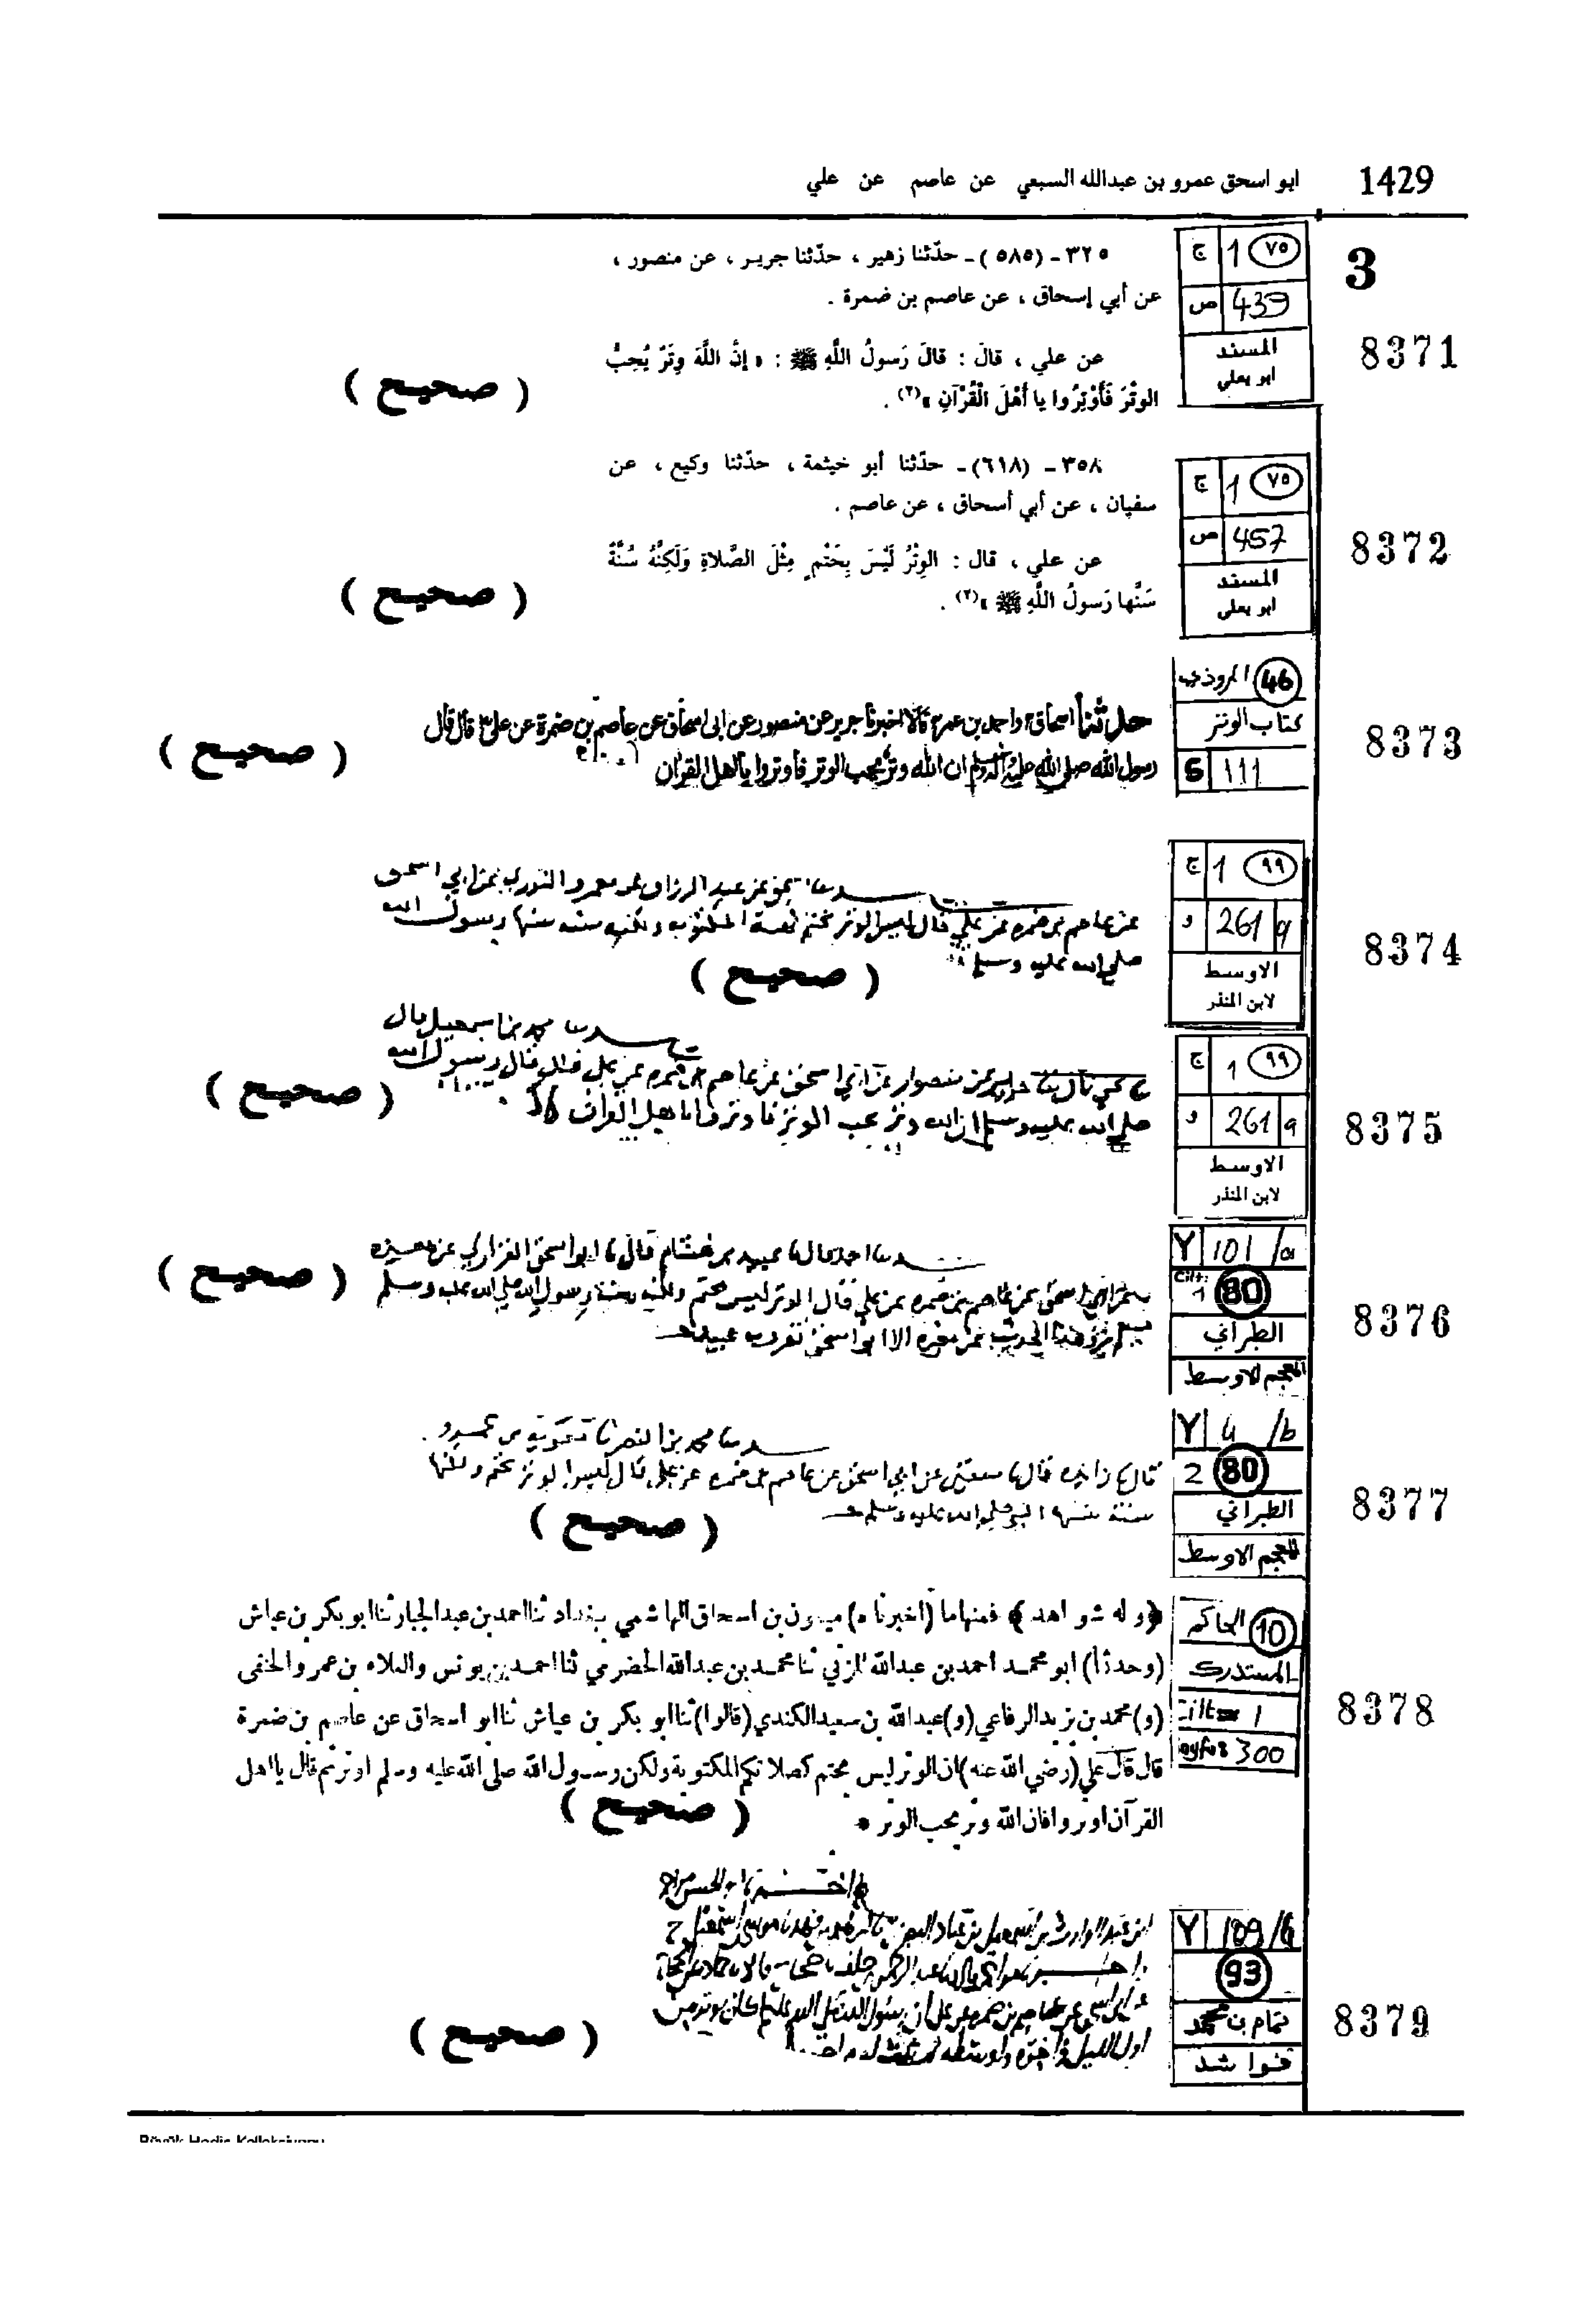 1429 ابو اسحق عمرو بن عبدالله السبعي عن عاصم عن علي
3
8371
ج 1 ٧٥
ص 439
المسند
ابو يعلى
٣٢٥ - (٥٨٥) - حدّثنا زهير ، حدّثنا جرير ، عن منصور ،
عن أبي إسحاق ، عن عاصم بن ضمرة .
عن علي ، قالَ : قالَ رَسولُ اللَّهِ ﷺ : « إنَّ اللَّهَ وِتَرٌ يُحِبُّ
الوِتْرَ فَأَوْتِرُوا يا أَهْلَ الْقُرْآنِ »(٢) .
( صحيح )
8372
ج 1 ٧٥
ص 457
المسند
ابو يعلى
٣٥٨ - (٦١٨) - حدّثنا أبو خيثمة ، حدّثنا وكيع ، عن
سفيان ، عن أبي أسحاق ، عن عاصم .
عن علي ، قال : الوِتْرُ لَيْسَ بِحَتْمٍ مِثْلَ الصَّلاةِ وَلَكِنَّهُ سُنَّةٌ
سَنَّها رَسولُ اللَّهِ ﷺ »(٢) .
( صحيح )
8373
المروذي 46
كتاب الوتر
S 111
حدثنا اسحاق واحمد بن عمرو قالا اخبرنا جرير عن منصور عن ابى اسحاق عن عاصم بن ضمرة عن على قال قال
رسول الله صلى الله عليه وسلم ان الله وتر يحب الوتر فأوتروا يا اهل القرآن
( صحيح )
8374
ج 1 ٩٩
و 261 a
الاوسط
لابن المنذر
عن عبد الرزاق عن معمر والثوري عن ابي اسحق
عن عاصم بن ضمره عن علي قال ليس الوتر بحتم المكتوبه ولكنه سنه سنها رسول الله
صلى الله عليه وسلم
( صحيح )
8375
ج 1 ٩٩
و 261 a
الاوسط
لابن المنذر
محمد بن اسمعيل قال
عن منصور عن ابي اسحق عن عاصم بن ضمره عن علي قال قال رسول الله
صلى الله عليه وسلم ان الله وتر يحب الوتر فاوتروا يا اهل القران
( صحيح )
8376
Y 101 /a
Cilt: 1 80
الطبراني
المعجم الاوسط
احمد قال عبيد بن هشام قال ابو اسحق الفزاري عن مغيره
عن ابي اسحق عن عاصم بن ضمره عن علي قال الوتر ليس بحتم ولكنه سنة رسول الله صلى الله عليه وسلم
لم يرو هذا الحديث عن مغيره الا ابو اسحق تفرد به عبيد
( صحيح )
8377
Y 4 /b
2 80
الطبراني
المعجم الاوسط
محمد بن النضر معوية بن عمرو
قال زايده قال عن ابي اسحق عن عاصم بن ضمره عن علي قال ليس الوتر بحتم ولكنها
سنة سنها النبي صلى الله عليه وسلم
( صحيح )
8378
الحاكم 10
المستدرك
Cilt 1
300
﴿وله شواهد﴾ فمنها ما (اخبرناه) ميمون بن اسحاق الهاشمي ببغداد ثنا احمد بن عبدالجبار ثنا ابو بكر بن عياش
(وحدثنا) ابو محمد احمد بن عبدالله المزني ثنا محمد بن عبدالله الحضرمي ثنا احمد بن يونس والعلاء بن عمرو الحنفى
(و) محمد بن يزيد الرفاعي (و) عبدالله بن سعيد الكندي (قالوا) ثنا ابو بكر بن عياش ثنا ابو اسحاق عن عاصم بن ضمرة
قال قال علي (رضي الله عنه) ان الوتر ليس بحتم كصلاتكم المكتوبة ولكن رسول الله صلى الله عليه وسلم اوتر ثم قال يا اهل
القرآن اوتروا فان الله وتر يحب الوتر *
( صحيح )
8379
Y 109/b
93
تمام بن محمد
فوا ئد
ابو الحسن
عن ابي اسحق عن عاصم بن ضمره عن علي ان رسول الله صلى الله عليه وسلم كان يوتر من
اول الليل
( صحيح )
Büyük Hadis Kolleksiyonu